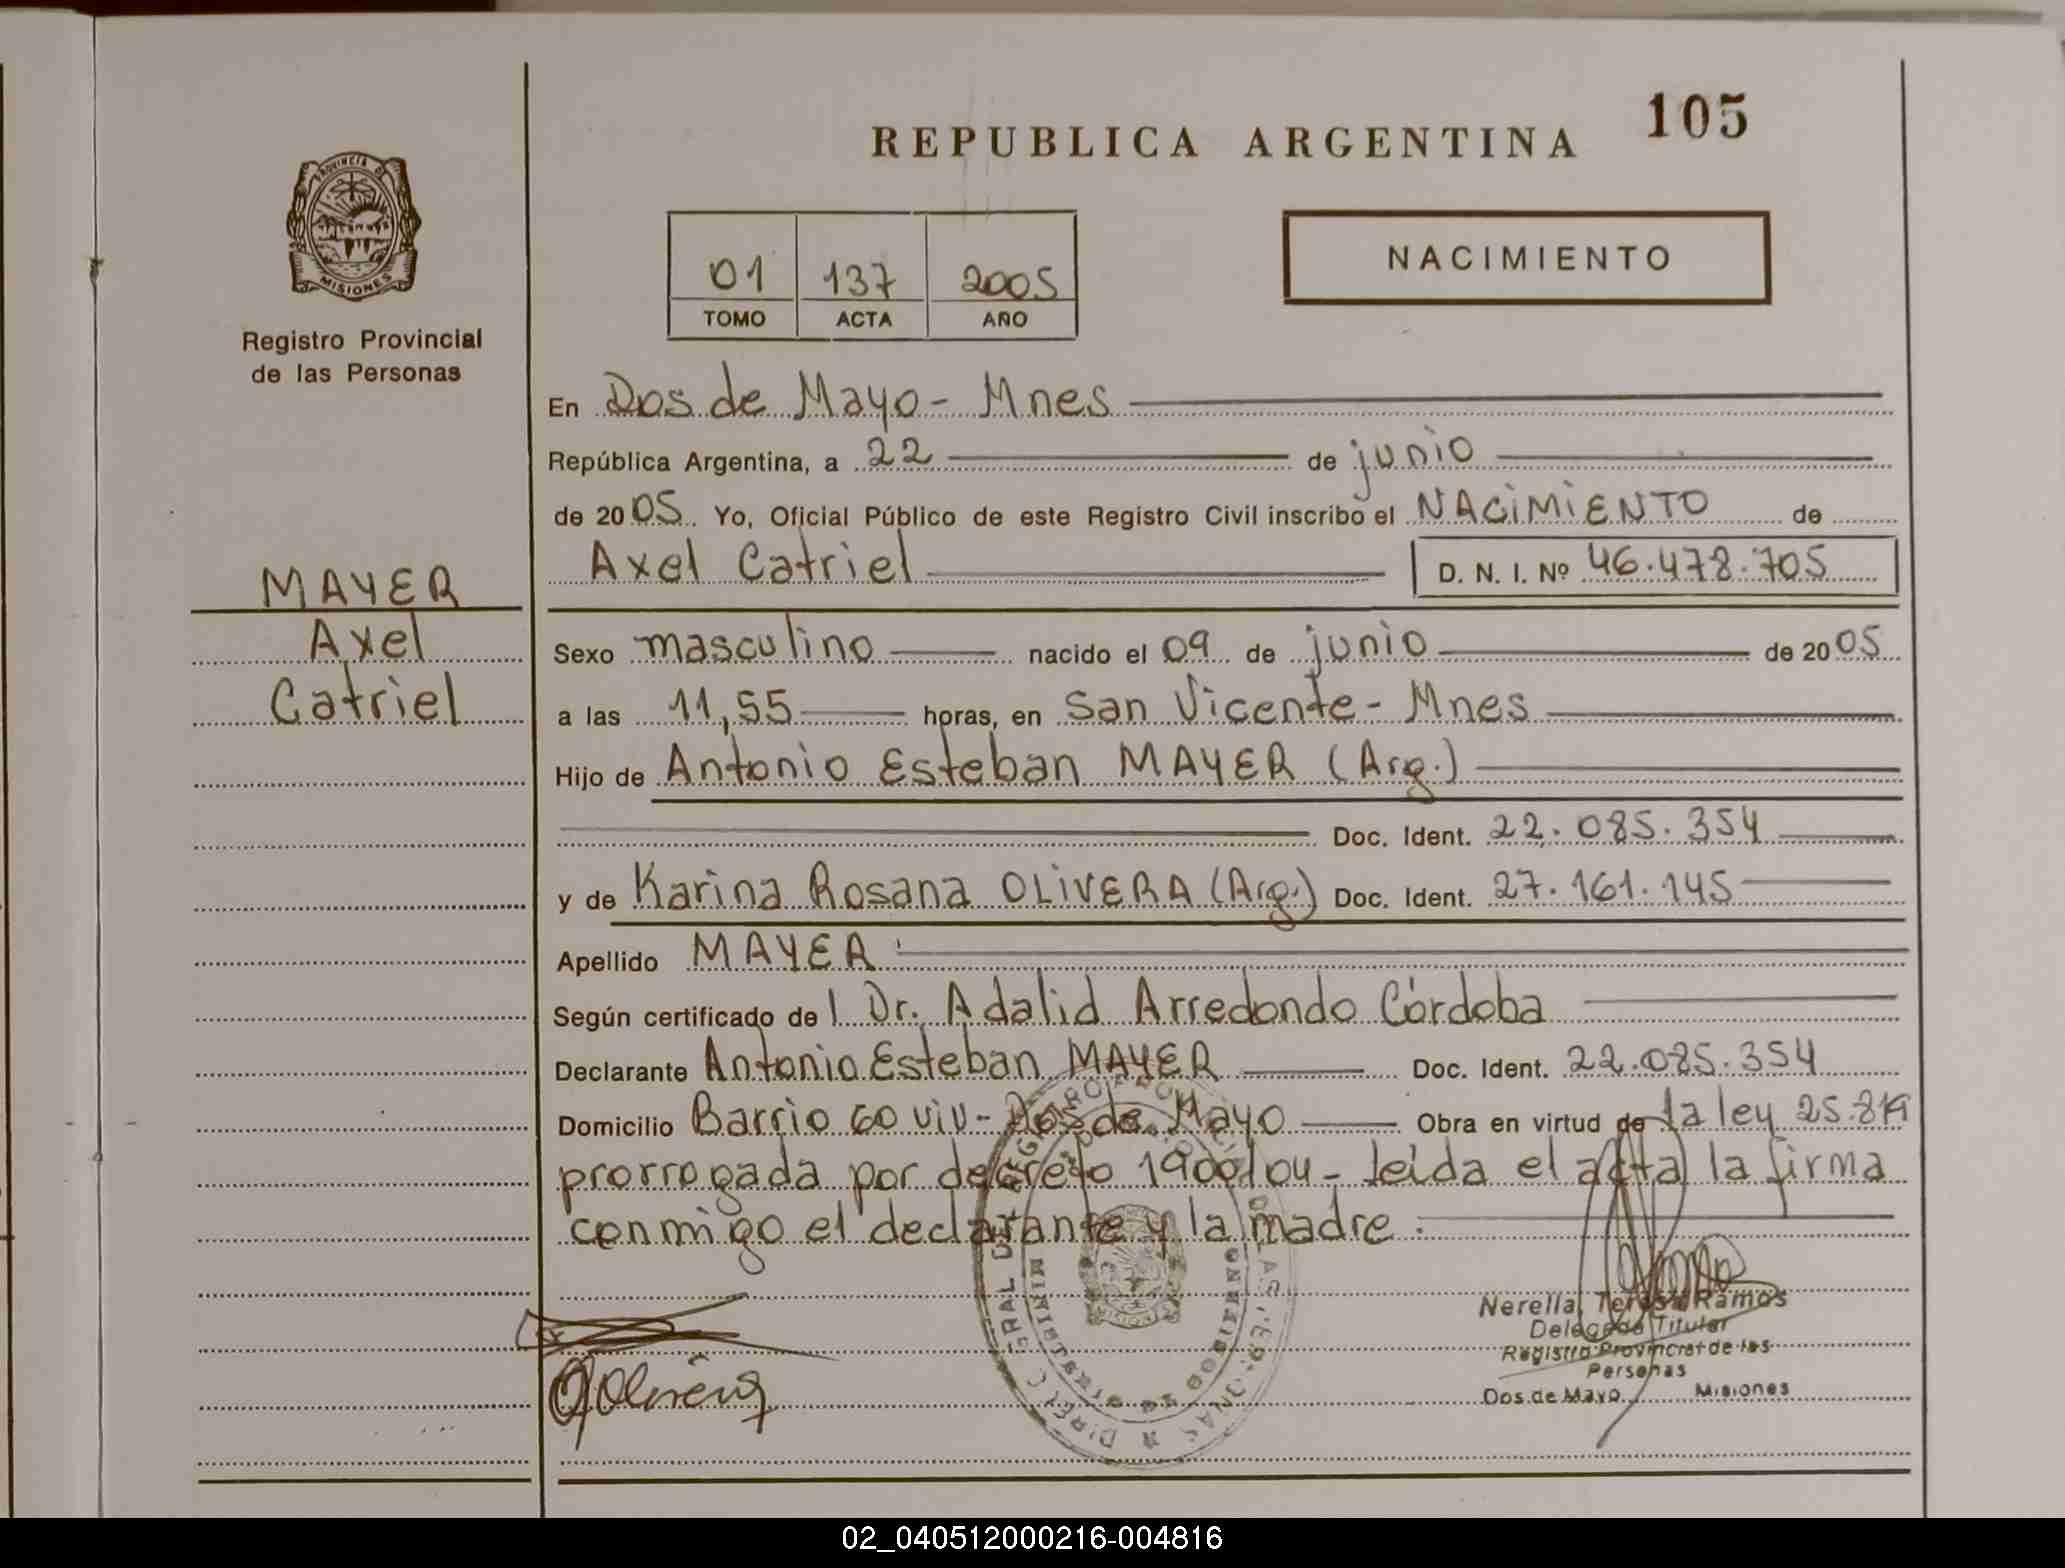 105
REPUBLICA ARGENTINA
PROVINCIA DE
MISIONES
Registro Provincial
de las Personas
01 137 2005
TOMO ACTA AÑO
NACIMIENTO
En Dos de Mayo - Mnes
República Argentina, a 22 de junio
de 2005 Yo, Oficial Público de este Registro Civil inscribo el NACIMIENTO de
Axel Catriel D. N. I. Nº 46.478.705
MAYER
Axel
Catriel
Sexo masculino nacido el 09 de junio de 2005
a las 11,55 horas, en San Vicente - Mnes
Hijo de Antonio Esteban MAYER (Arg.)
Doc. Ident. 22.085.354
y de Karina Rosana OLIVERA (Arg.) Doc. Ident. 27.161.145
Apellido MAYER
Según certificado del Dr. Adalid Arredondo Córdoba
Declarante Antonio Esteban MAYER Doc. Ident. 22.085.354
Domicilio Barrio 60 viv - Dos de Mayo Obra en virtud de la ley 25.819
prorrogada por decreto 1900/04 - leída el acta la firma
conmigo el declarante y la madre.
Nerella Teresa Ramos
Delegada Titular
Registro Provincial de las
Personas
Dos de Mayo Misiones
02_040512000216-004816